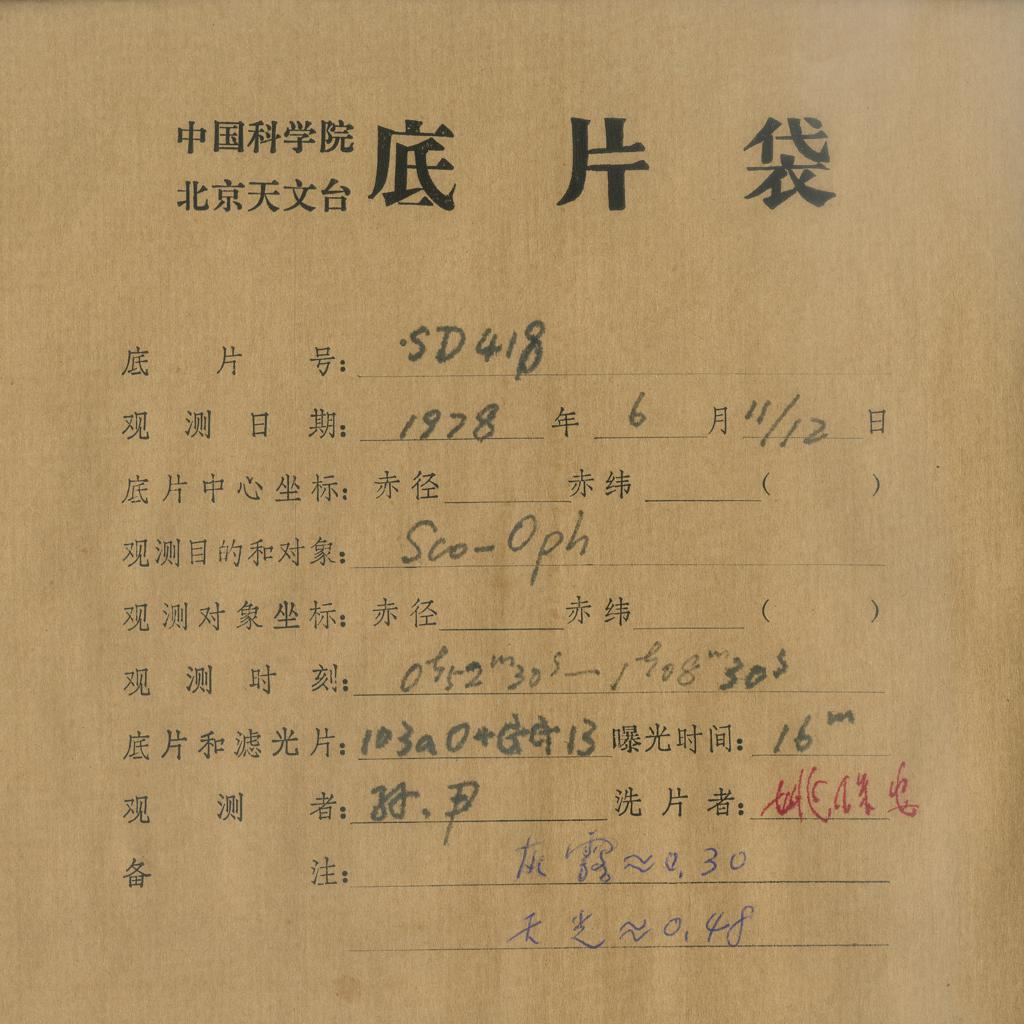 中国科学院
北京天文台
底片袋
底片号：SD418
观测日期：1978年6月11/12日
底片中心坐标：赤径 赤纬 （ ）
观测目的和对象：Sco-Oph
观测对象坐标：赤径 赤纬 （ ）
观测时刻：0h52m30s—1h08m30s
底片和滤光片：103aO+GG13 曝光时间：16m
观测者：孙.尹 洗片者：姚保安
备注：灰雾≈0.30
天光≈0.48